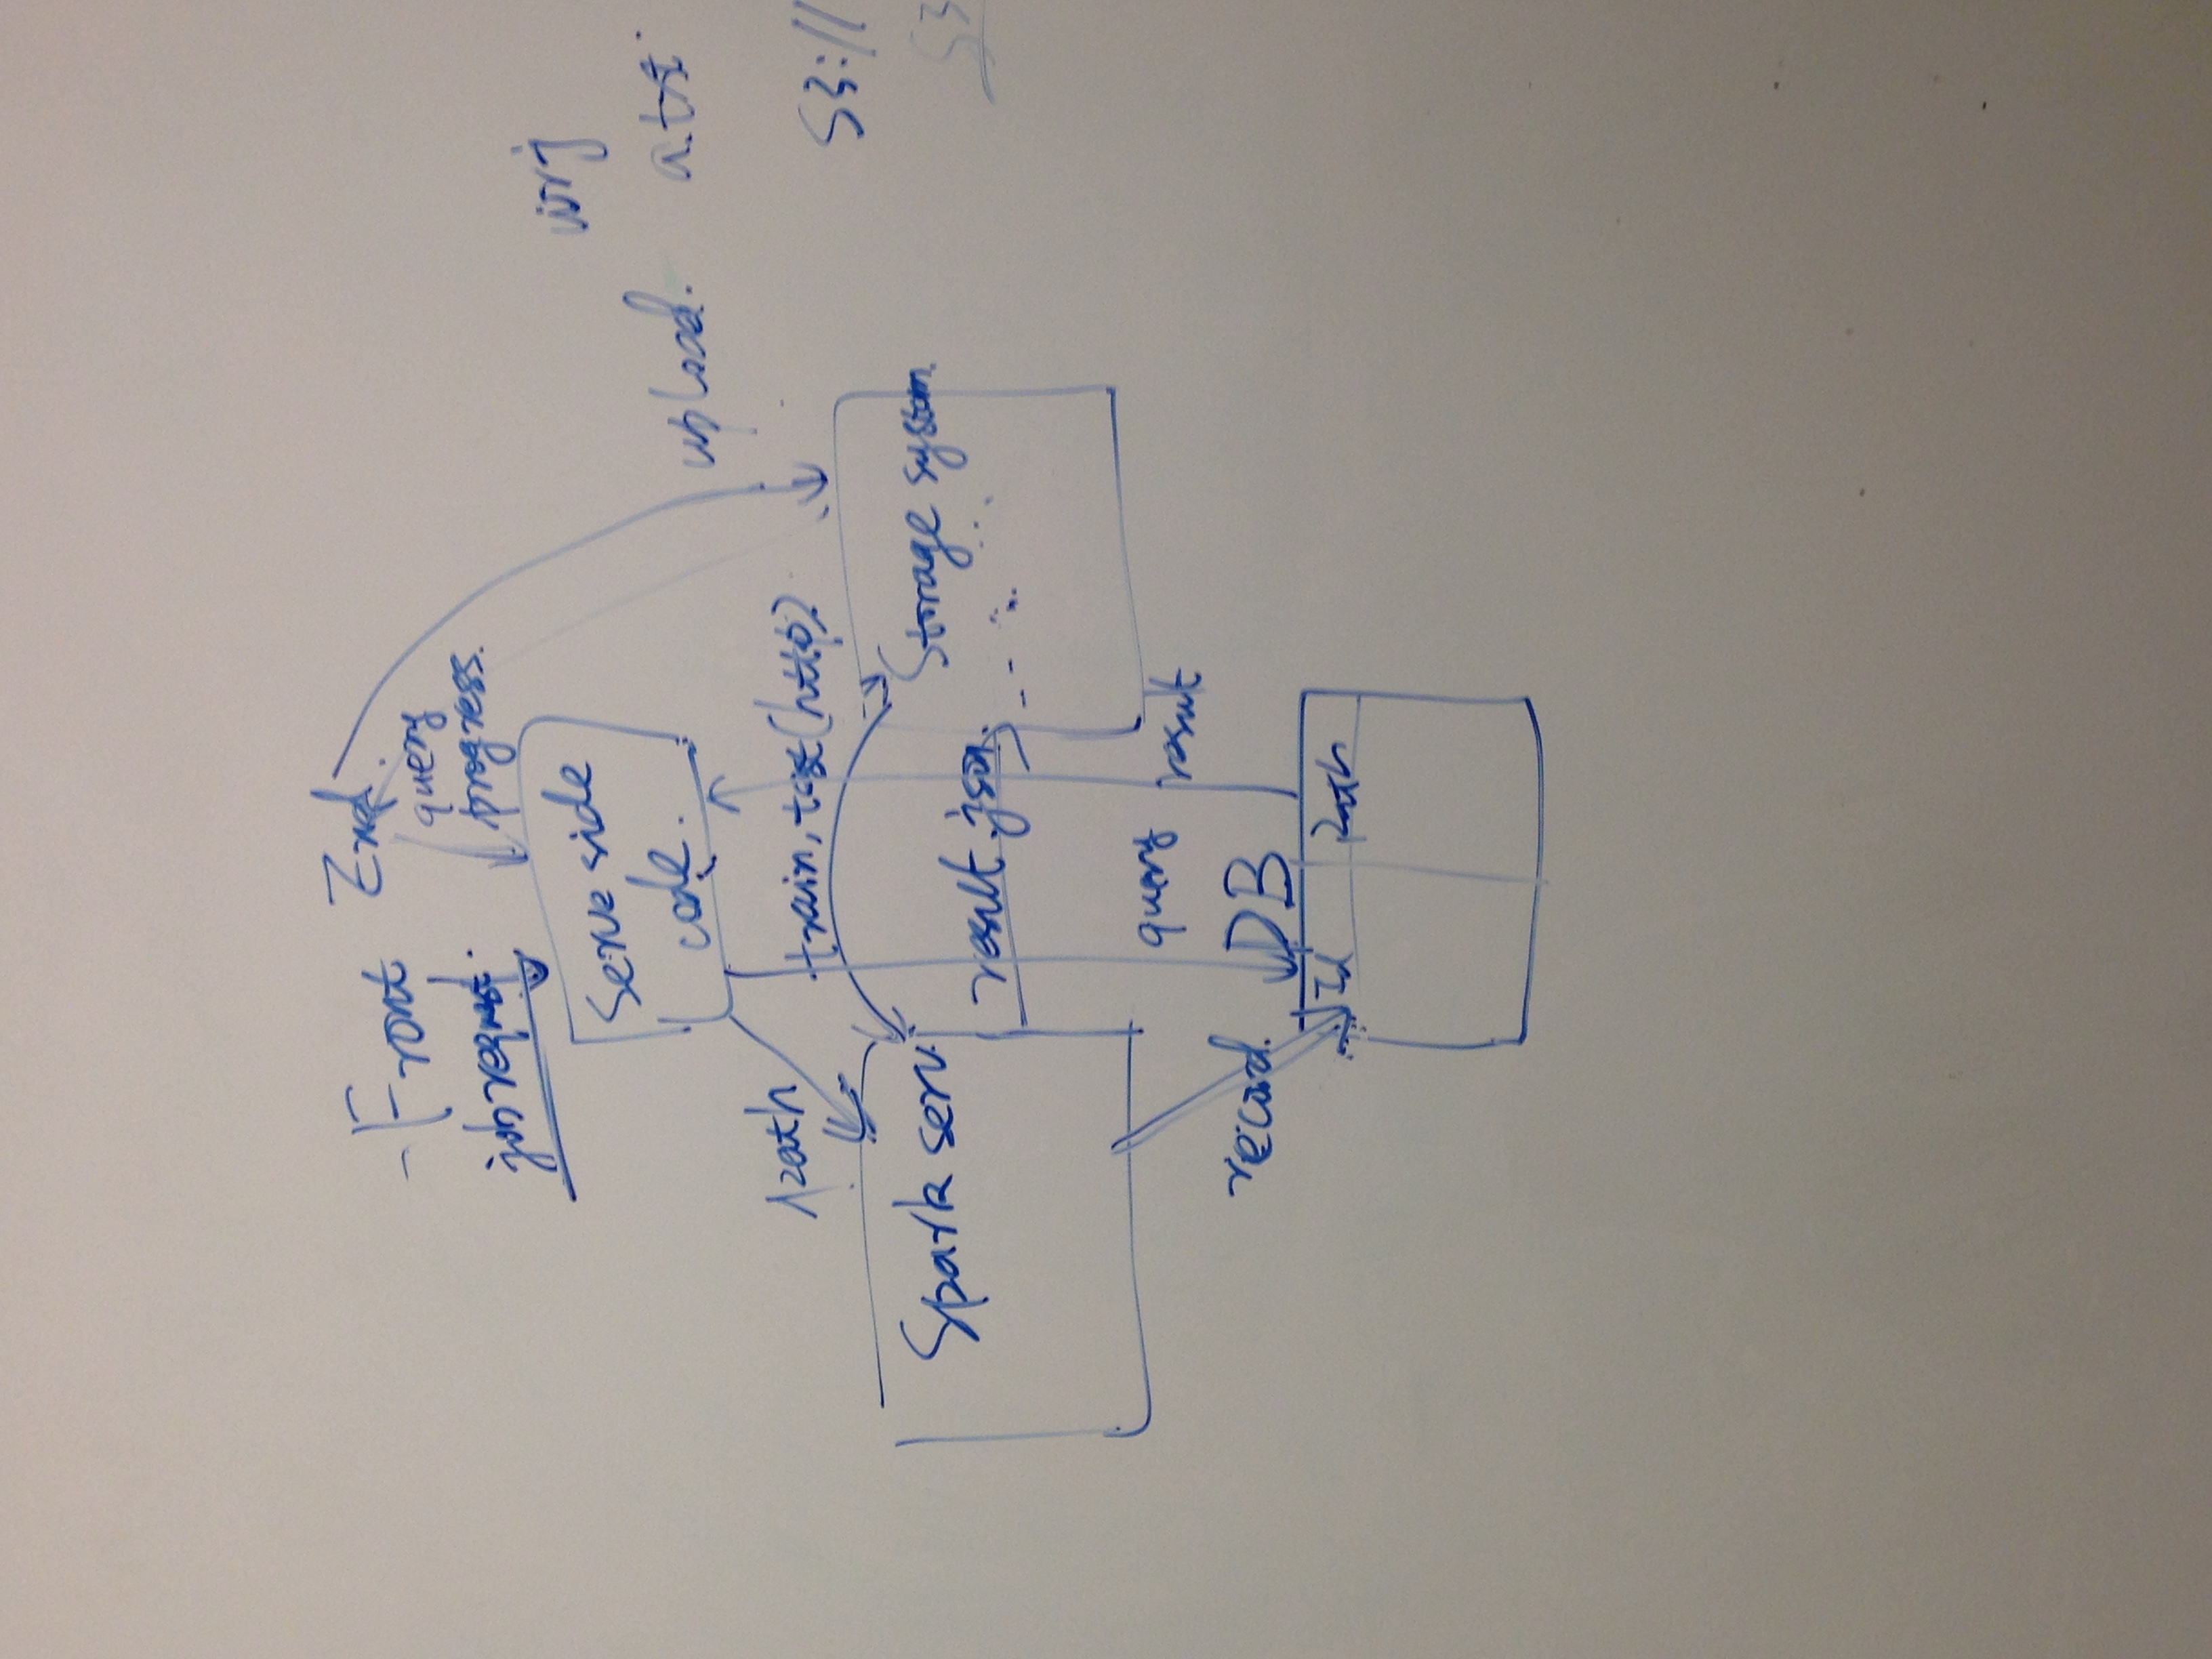 Front End.
job request.
query
progress.
Serve side
code.
upload.
a.txt
path
train, test (http)
S3://
Spark serv.
Storage system.
result.json.
S3
query
result
record.
DB
Id
Path